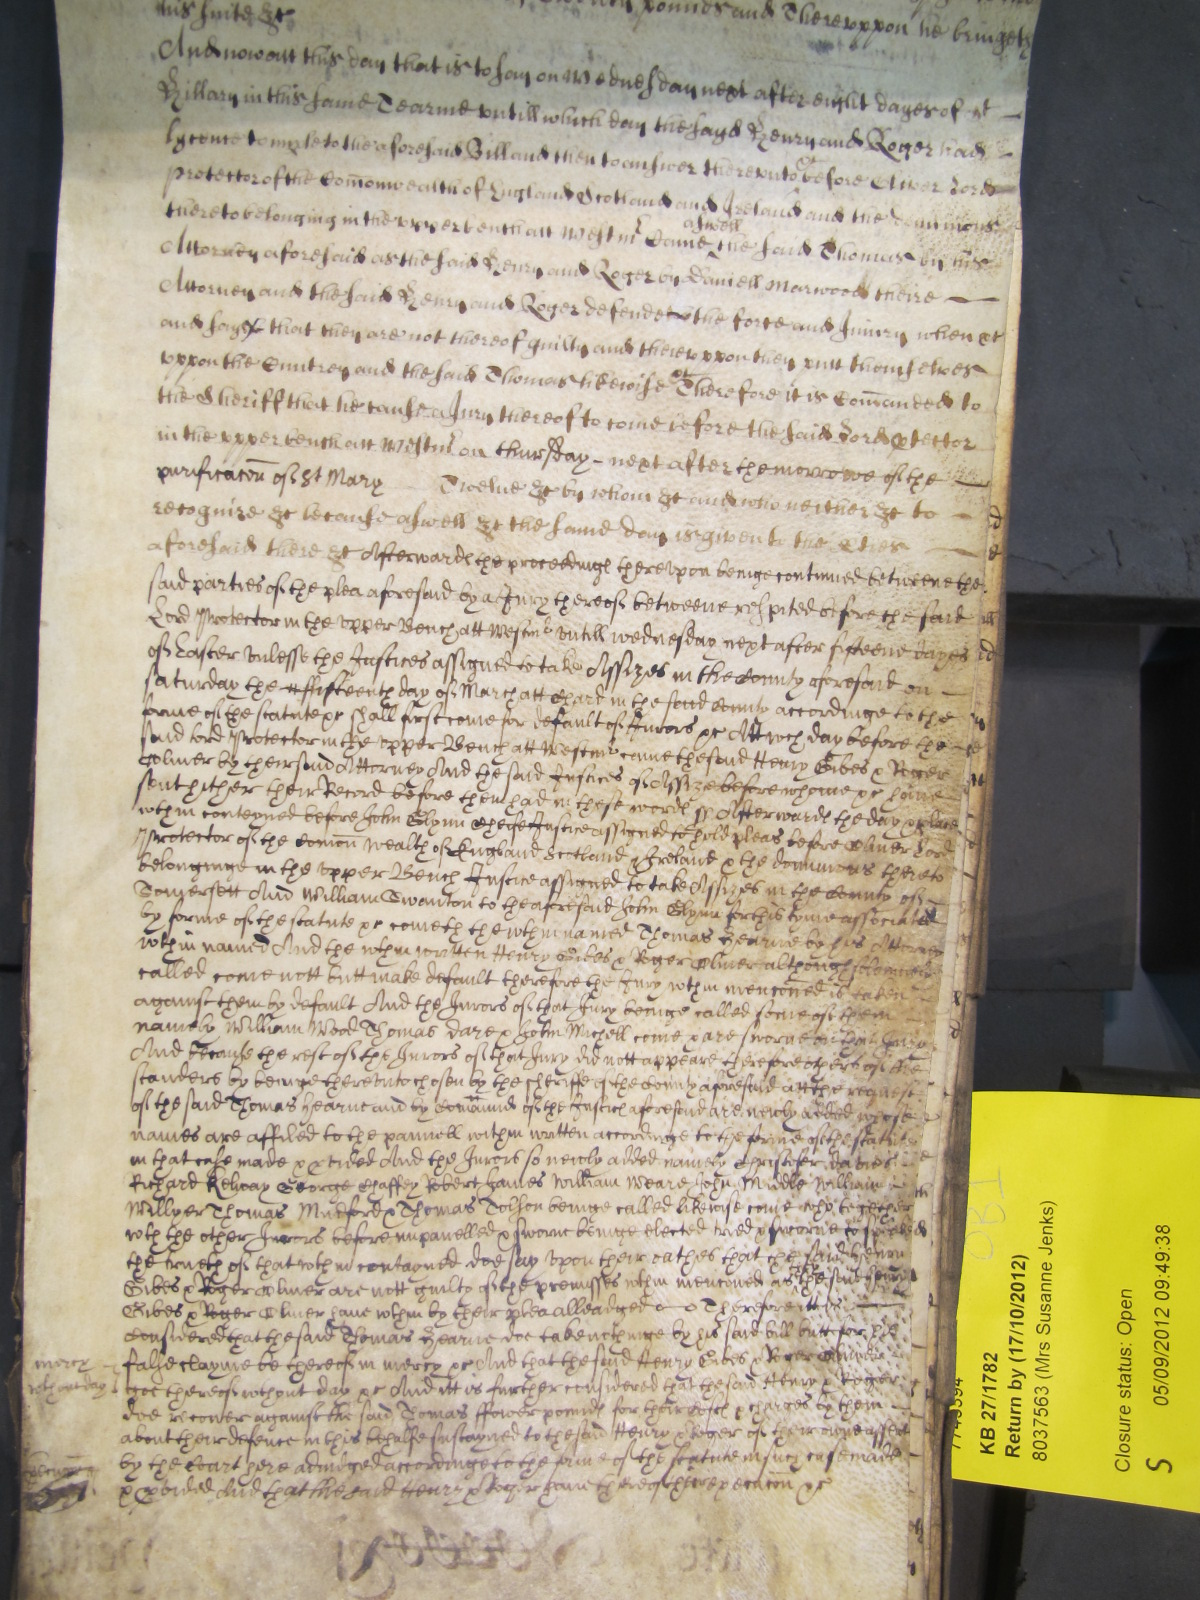 this suite &c
pounds and Thereuppon he bringeth
And now att this day that is to say on Wednesday next after eight dayes of St
Hillary in this same Tearme untill which day the sayd Henry and Roger had
lycence to imparle to the aforesaid Bill and then to answer thereunto &c before Oliver Lord
Protector of the Comonwealth of England Scotland and Ireland and the dominions
thereto belonging in the upper bench att Westmr Came aswell the said Thomas by his
Attorney aforesaid as the said Henry and Roger by Daniell Marwood theire
Attorney and the said Henry and Roger defende the force and Iniury when &c
and saye that they are not thereof guilty and thereuppon they putt themselves
uppon the Cuntrey and the said Thomas likewise &c Therefore it is Comanded to
the Sheriff that he cause a Jury thereof to come before the said Lord Protector
in the upper bench att Westmr on thursday next after the morrowe of the
purificacon of St Mary Twelve &c by whom &c and who neither &c to
recognize &c because aswell &c the same day is given to the Pties
aforesaid there &c Afterwards the proceedings thereupon beinge continued betweene the
said parties of the plea aforesaid by a Jury thereof betweene respited before the said
Lord Protector in the Upper Bench att Westmr untill wednesday next after fifteene dayes
of Easter unlesse the Justices assigned to take Assizes in the County aforesaid on
Saturday the ffifteenth day of March att Chard in the said County accordinge to the
forme of the statute &c shall first come for default of Jurors &c Att wch day before the
said Lord Protector in the Upper Bench att Westmr came the said Henry Gibes & Roger
Olmer by their said Attorney And the said Justices of Assize before whome &c have
sent hither their Record before them had in these words ss Afterwards the day & place
wthin conteyned before John Glynn Cheife Justice assigned to hold pleas before Oliver Lord
Protector of the Comon Wealth of England Scotland & Ireland & the dominions thereto
belonginge in the Upper Bench Justice assigned to take Assizes in the County of
Somersett And William Swanton to the aforesaid John Glynn for this tyme associated
by forme of the statute &c cometh the wthin named Thomas Hearne by his Attorney
wthin named And the wthin written Henry Gibes & Roger Olmer although solemnely
called come nott butt make default therefore the Jury wthin menconed is taken
against them by default And the Jurors of that Jury beinge called some of them
namely William Wood Thomas dare & John Michell come & are sworne on that Jury
And because the rest of the Jurors of that Jury did nott appeare therefore others of the
standers by beinge thereunto chosen by the Sheriffe of the County aforesaid att the request
of the said Thomas Hearne and by comaund of the Justices aforesaid are newly added whose
names are affiled to the pannell wthin written accordinge to the forme of the statute
in that case made & pvided And the Jurors so newly added namely Christofer davies
Richard Kelway George Chaffey Robert James William Weare John Middle William
Willyer Thomas Mudford & Thomas Tolson beinge called likewise come who together
wth the other Jurors before impanelled & sworne beinge elected tryed & sworne to speake
the trueth of that wthin contayned doe say upon their oathes that the said Henry
Gibes & Roger Olmer are nott guilty of the premisses wthin menconed as the said Henry
Gibes & Roger Olmer have wthin by their plea alleadged Therefore itt is
Considered that the said Thomas Hearne doe take nthinge by his said bill butt for his
mercy false clayme be thereof in mercy &c And that the said Henry Gibes & Roger Olmer
without day goe thereof wthout day &c And itt is further considered that the said Henry & Roger
doe recover against the said Thomas ffower pounds for their costs & charges by them
about their defence in this behalfe sustayned to the said Henry & Roger of their owne assent
by the Court here adiudged accordinge to the forme of the statute in such case made
& pvided And that the said Henry & Roger have thereof their execucon &c
KB 27/1782
Return by (17/10/2012)
8037563 (Mrs Susanne Jenks)
Closure status: Open
S 05/09/2012 09:49:38